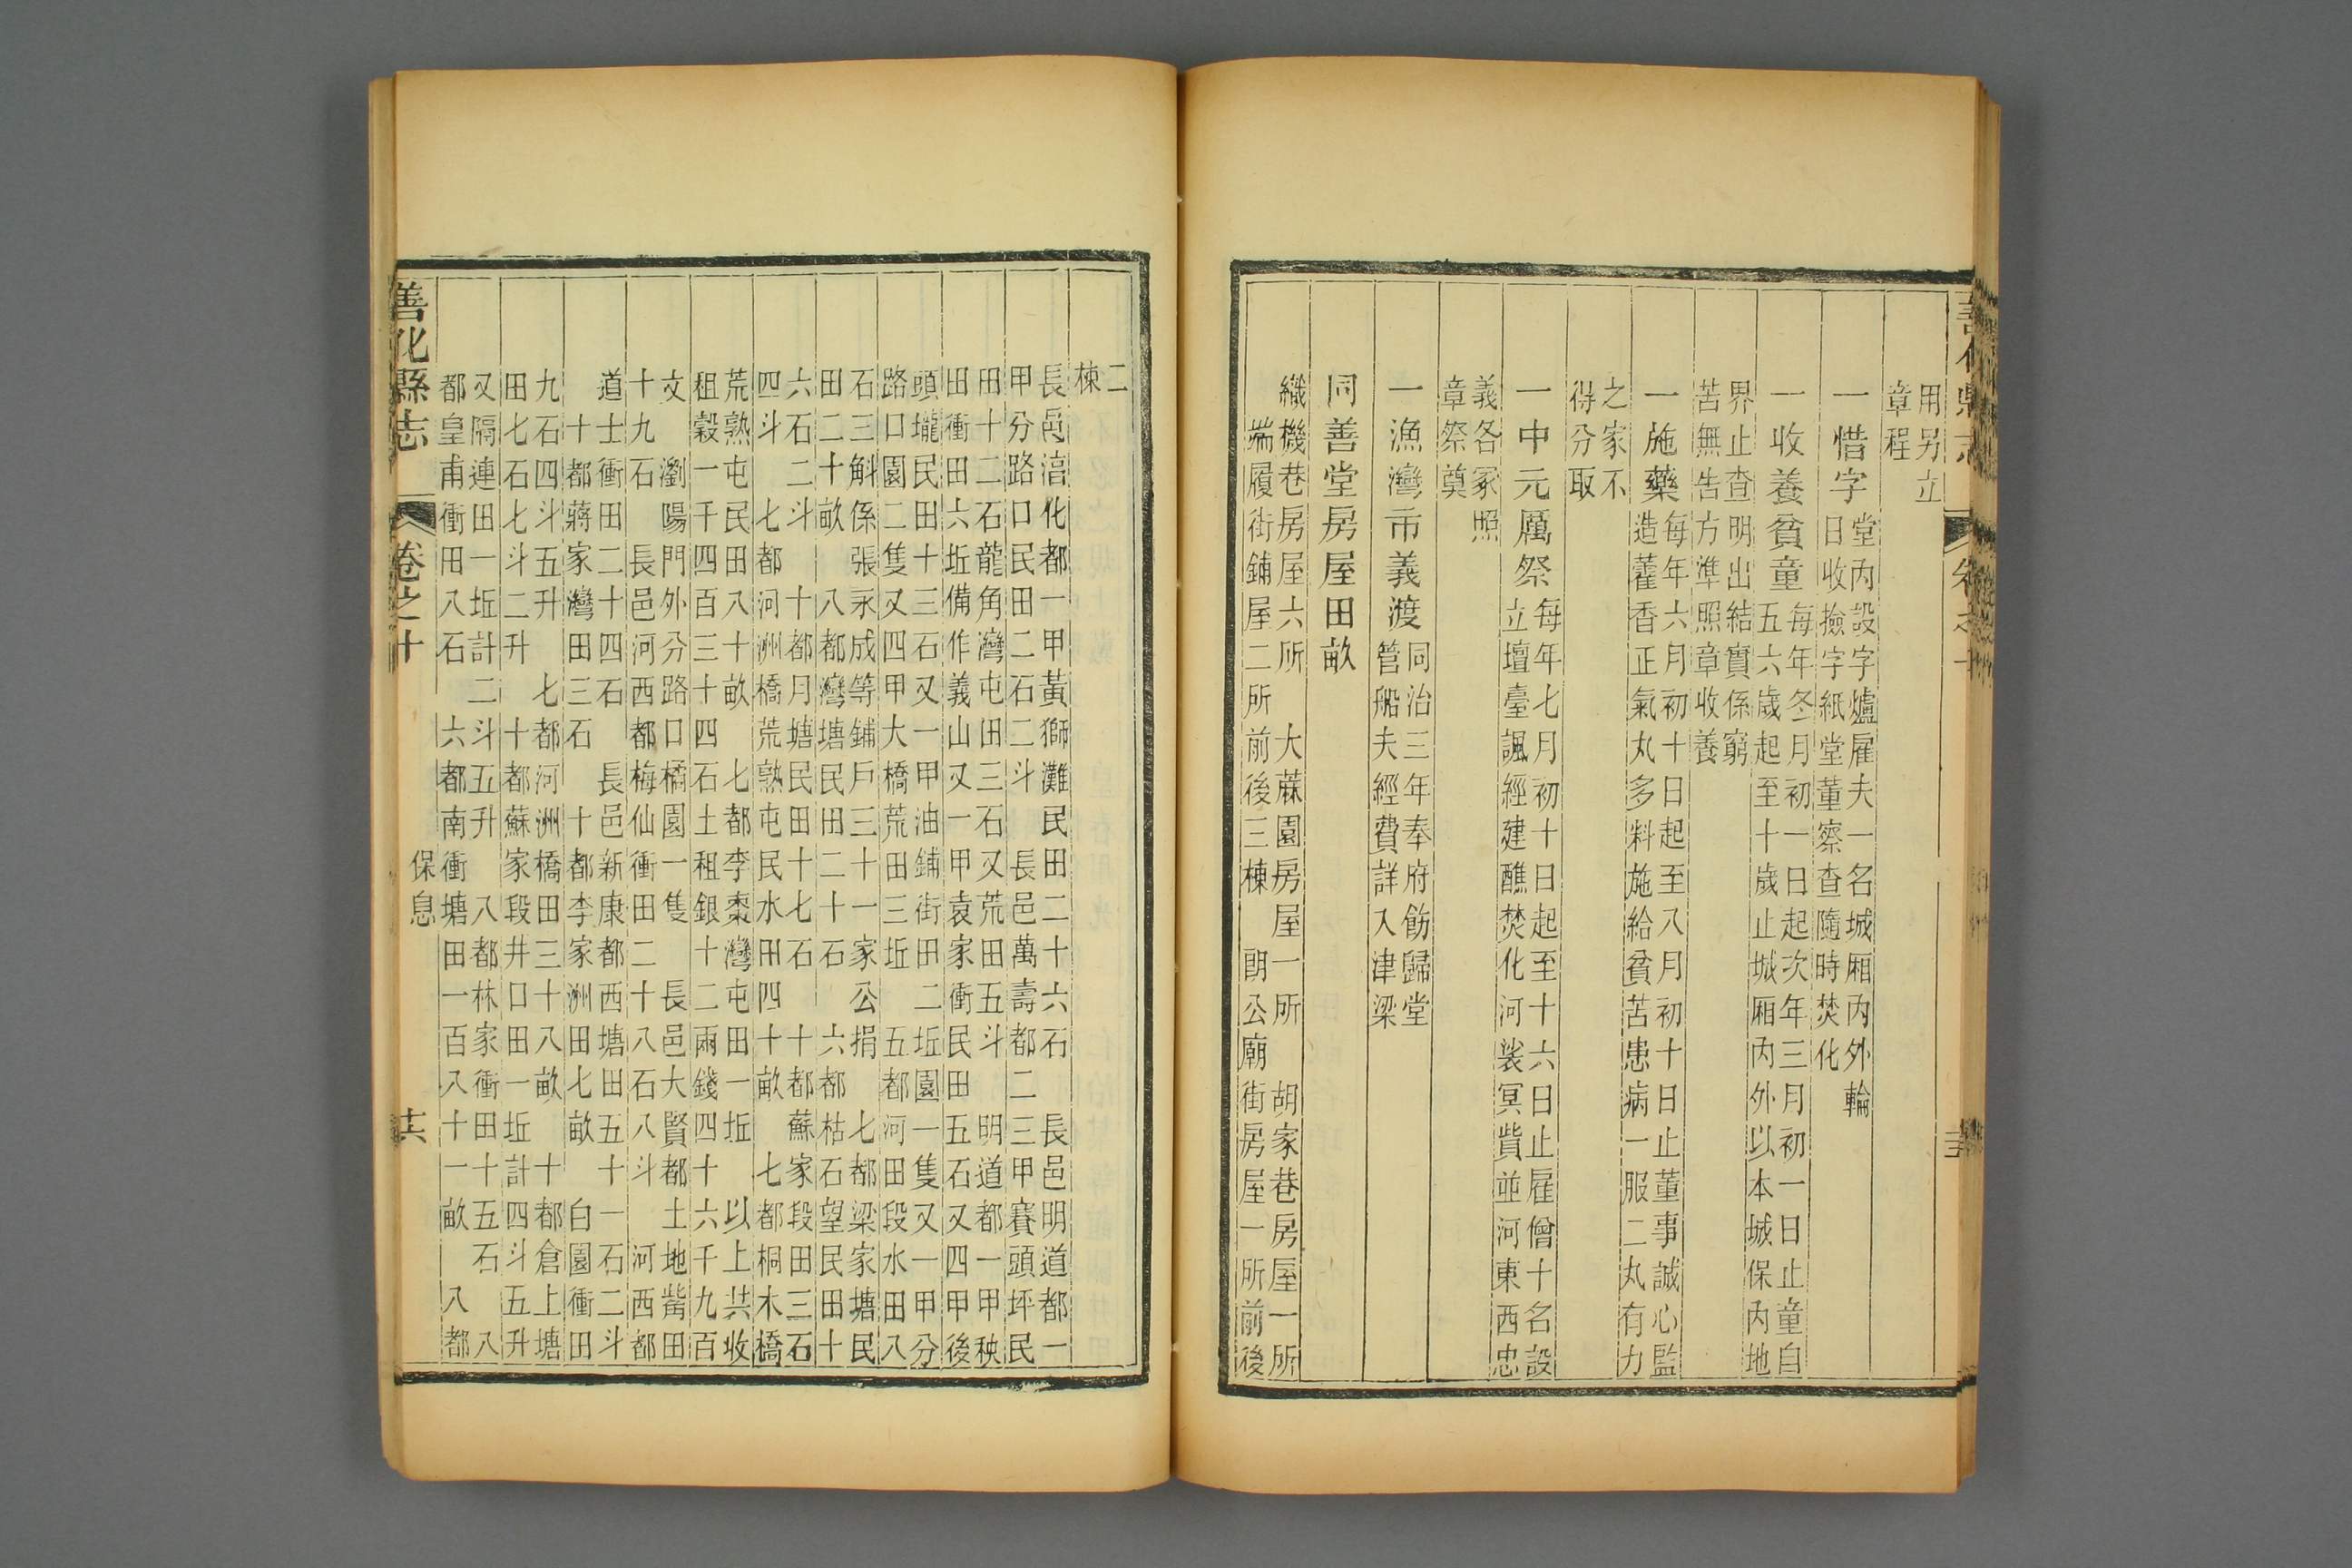 用另立
章程
一惜字
堂內設字爐雇夫一名城廂內外輪
日收撿字紙堂董察查隨時焚化
一收養貧童
每年冬月初一日起次年三月初一日止童自
五六歲起至十歲止城廂內外以本城保內地
界止查明出結實係窮
苦無告方準照章收養
一施藥
每年六月初十日起至八月初十日止董事誠心監
造藿香正氣丸多料施給貧苦患病一服二丸有力
之家不
得分取
一中元厲祭
每年七月初十日起至十六日止雇僧十名設
立壇臺諷經建醮焚化河裟冥貲並河東西忠
義各冢照
章祭奠
一漁灣市義渡
同治三年奉府飭歸堂
管船夫經費詳入津梁
同善堂房屋田畝
織機巷房屋六所 大蔴園房屋一所 胡家巷房屋一所
端履街鋪屋二所前後三棟 朗公廟街房屋一所前後
二
棟
長邑淯化都一甲黃獅灘民田二十六石 長邑明道都一
甲分路口民田二石二斗 長邑萬壽都二三甲賽頭坪民
田十二石龍角灣屯田三石又荒田五斗 明道都一甲秧
田衝田六坵備作義山又一甲袁家衝民田五石又四甲後
頭壠民田十三石又一甲油鋪街田二坵園一隻又一甲分
路口園二隻又四甲大橋荒田三坵 五都河田段水田八
石三斛係張永成等鋪戶三十一家公捐 七都梁家塘民
田二十畝 八都灣塘民田二十石 六都枯石望民田十
六石二斗 十都月塘民田十七石 十都蘇家段田三石
四斗 七都河洲橋荒熟屯民水田四十畝 七都桐木橋
荒熟屯民田八十畝 七都李棗灣屯田一坵 以上共收
租穀一千四百三十四石土租銀十二兩錢四十六千九百
文 瀏陽門外分路口橘園一隻 長邑大賢都土地嘴田
十九石 長邑河西都梅仙衝田二十八石八斗 河西都
道士衝田二十四石 長邑新康都西塘田五十一石二斗
十都蔣家灣田三石 十都李家洲田七畝 白園衝田
九石四斗五升 七都河洲橋田三十八畝 十都倉上塘
田七石七斗二升 十都蘇家段井口田一坵計四斗五升
又隔連田一坵計二斗五升 八都林家衝田十五石 八
都皇甫衝田八石 六都南衝塘田一百八十一畝 八都
善化縣志 卷之十 保息 十六